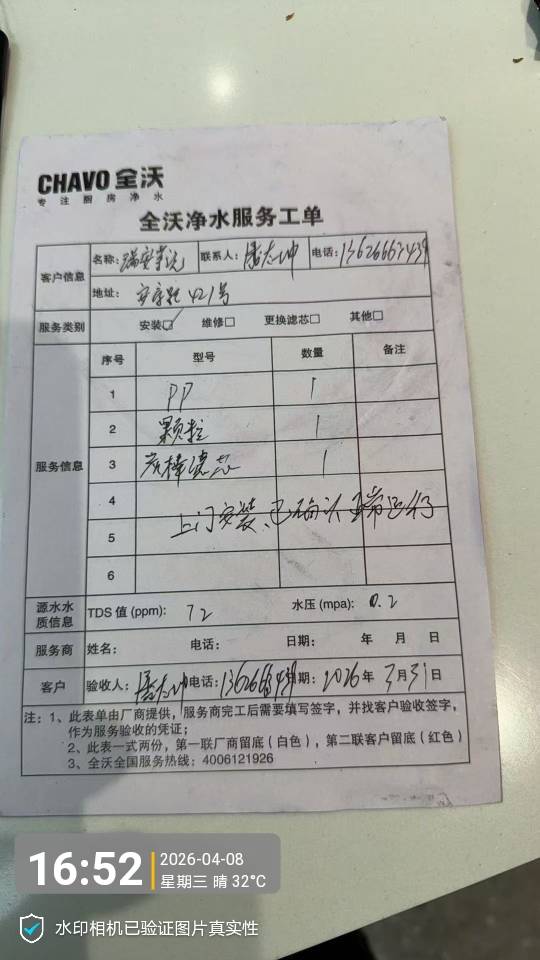 CHAVO 全沃
专注厨房净水
全沃净水服务工单
客户信息 名称: 瑞安 联系人: 电话:
地址: 421号
服务类别 安装☑ 维修□ 更换滤芯□ 其他□
服务信息 序号 型号 数量 备注
1 PP 1
2 颗粒 1
3 炭棒滤芯 1
4
上门安装、已确认正常运行
5
6
源水水质信息 TDS 值 (ppm): 72 水压 (mpa): 0.2
服务商 姓名: 电话: 日期: 年 月 日
客户 验收人: 电话: 日期: 2026年 3月31日
注: 1、此表单由厂商提供，服务商完工后需要填写签字，并找客户验收签字，
作为服务验收的凭证；
2、此表一式两份，第一联厂商留底（白色），第二联客户留底（红色）
3、全沃全国服务热线：4006121926
16:52 2026-04-08
星期三 晴 32°C
水印相机已验证图片真实性